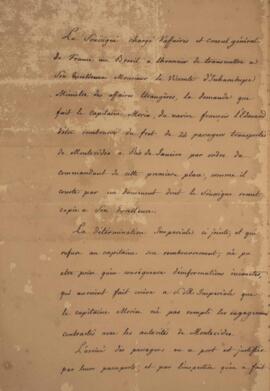 Le Soussigné chargé d'affaires et consul général
de France au Brésil a l'honneur de transmettre à
Son Excellence Monsieur le Vicomte d'Inhambupe
Ministre des affaires étrangères, la demande que
fait le capitaine Morin, du navire français l'Édouard
d'être remboursé du fret de 24 passagers transportés
de Montevideo à Rio de Janeiro par ordre du
commandant de cette première place, comme il
conste par un document dont le Soussigné remet
copie à Son Excellence.
La détermination Impériale ci jointe, et qui
refuse au capitaine son remboursement, n'a pu
être prise qu'en conséquence d'informations inexactes,
qui auroient fait croire à S. M. Impériale que
le capitaine Morin n'a pas rempli les engagemens
contractés avec les autorités de Montevideo.
L'arrivée des passagers en ce port est justifiée
par leurs passeports et par l'inspection qu'en a fait